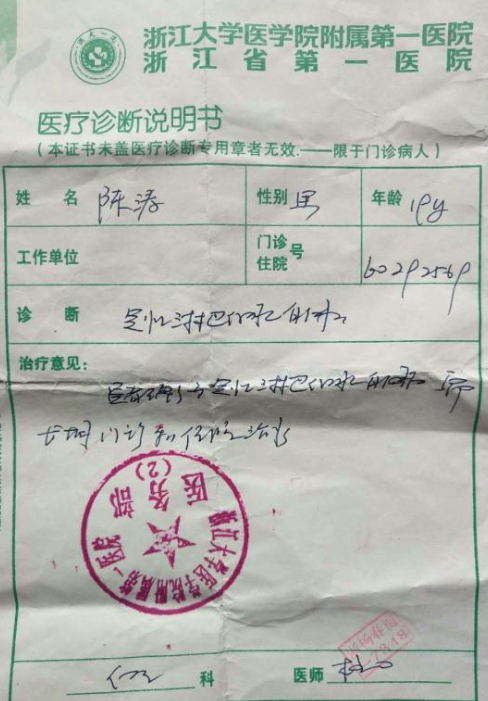 浙江大学医学院附属第一医院
浙江省第一医院
医疗诊断说明书
(本证书未盖医疗诊断专用章者无效.——限于门诊病人)
姓名 陈涛 性别 男 年龄 19y
工作单位 门诊住院号 60292569
诊断 急性淋巴细胞白血病
治疗意见:
患者确诊为急性淋巴细胞白血病
长期门诊和住院治疗
浙江大学医学院附属第一医院
医务部
(2)
科 医师
2848